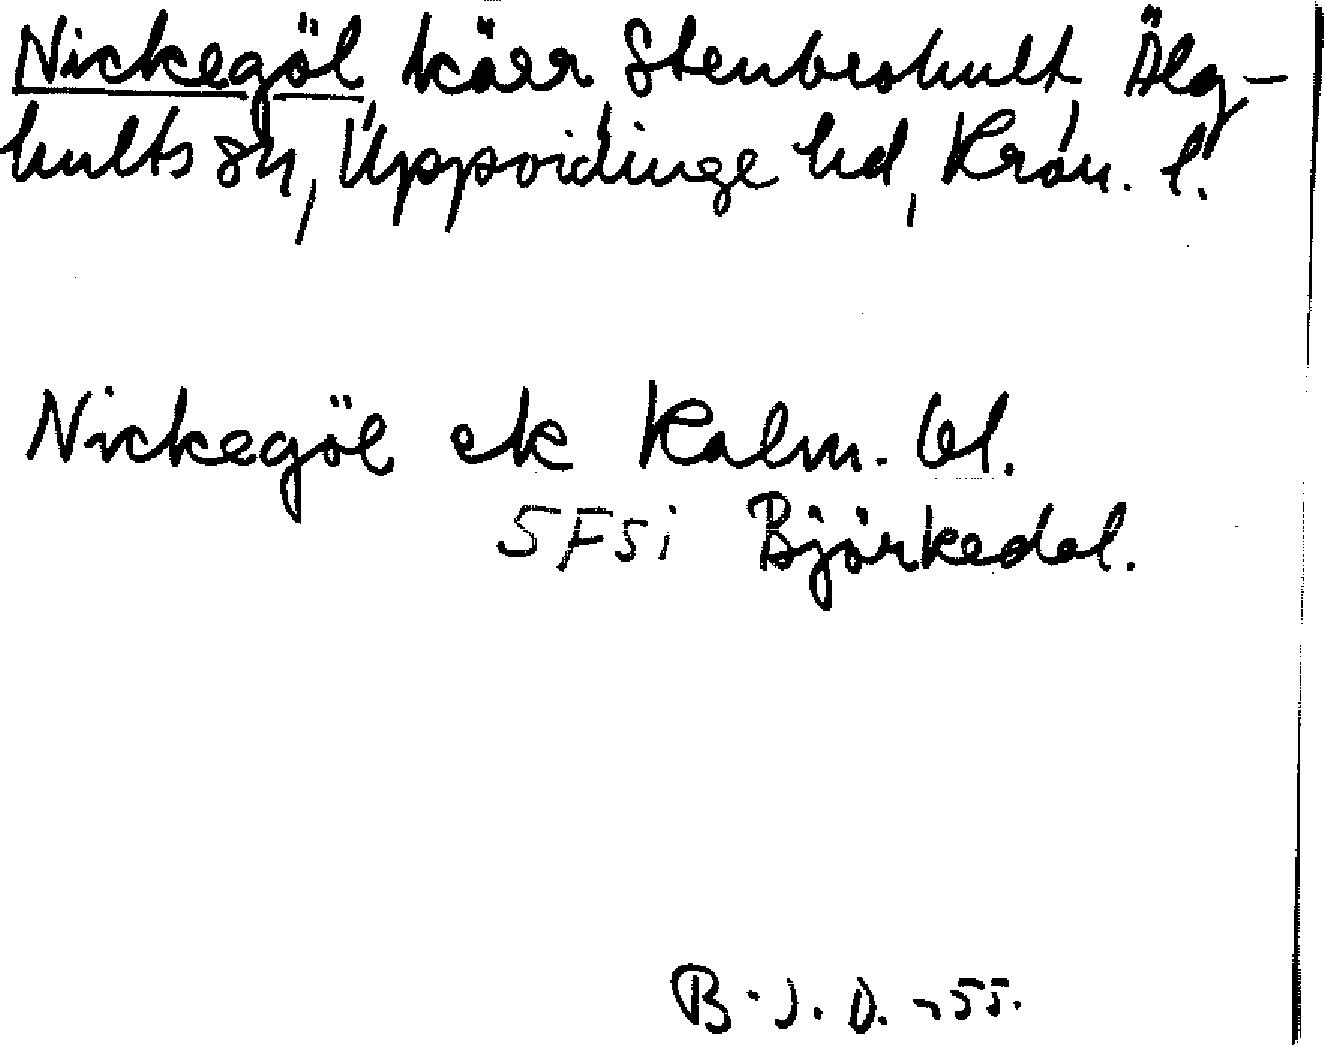 Nickegöl, kärr Stenbrohult Älg-
hults sn, Uppvidinge hd, Kron. l.
Nickegöl ek Kalm. bl.
5F5i Björkedal.
B.J.D. -55.